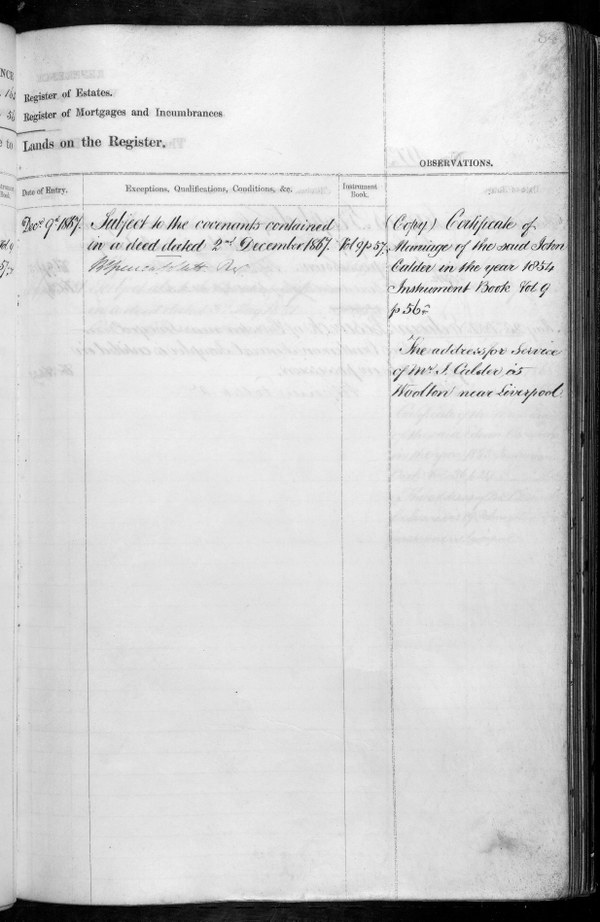 84
NCE
Register of Estates.
Register of Mortgages and Incumbrances
Lands on the Register.
OBSERVATIONS.
Date of Entry.
Exceptions, Qualifications, Conditions, &c.
Instrument
Book.
Decr 9th 1867.
Subject to the covenants contained
in a deed dated 2nd December 1867.
Vol 9 p 57.
(Copy) Certificate of
Marriage of the said John
Calder in the year 1854
Instrument Book Vol 9
p 56
The address for Service
of Mr. J. Calder is
Woolton near Liverpool.